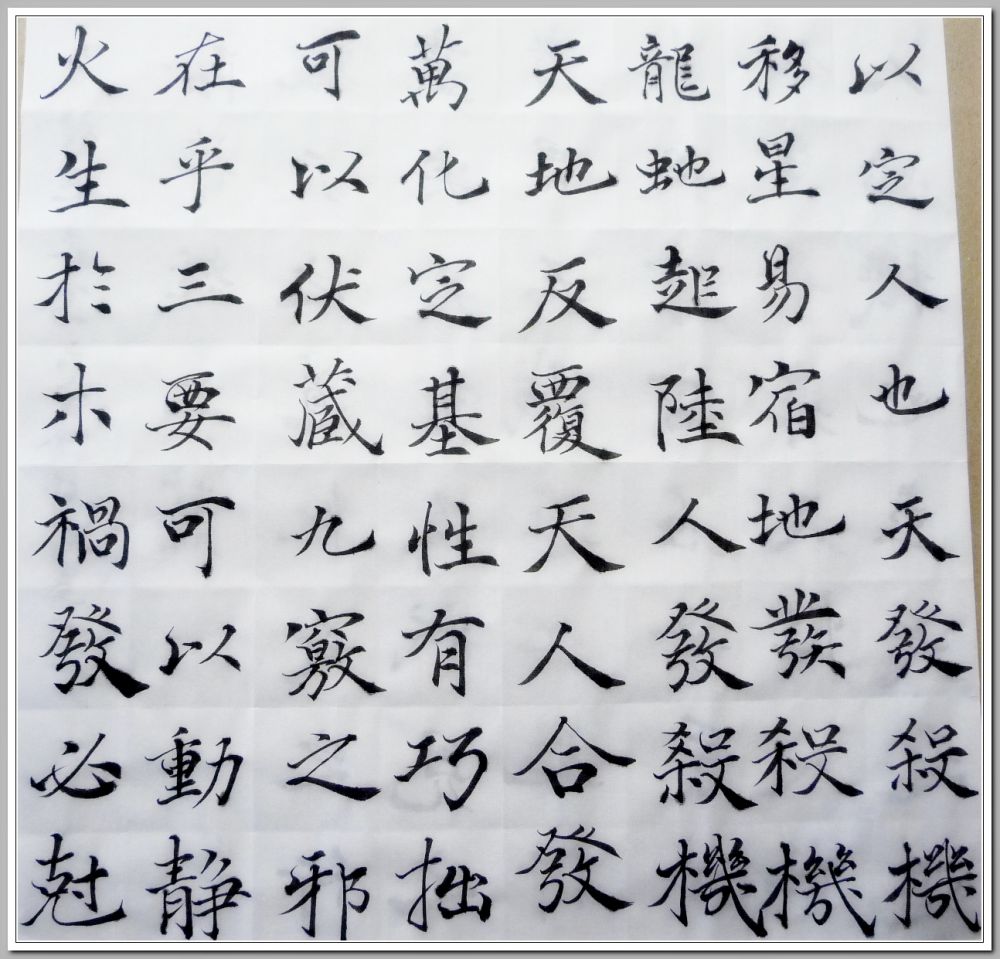 以定人也天發殺機
移星易宿地發殺機
龍虵起陸人發殺機
天地反覆天人合發
萬化定基性有巧拙
可以伏藏九竅之邪
在乎三要可以動静
火生於木禍發必尅